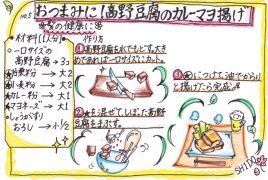 NO.5 おつまみに!高野豆腐のカレーマヨ揚げ
髪の健康に
材料(1人分)
一口サイズの
高野豆腐→3コ
片栗粉→大2
小麦粉→大2
カレー粉→大1
マヨネーズ→大1
しょうがすり
おろし→小1/2
作り方
①高野豆腐を水でもどす。大き
めであれば一口サイズにカット。
②★を混ぜて、しぼった高野
豆腐をまぶす。
③②につけて、油でからり
と揚げたら完成。
SHIDO